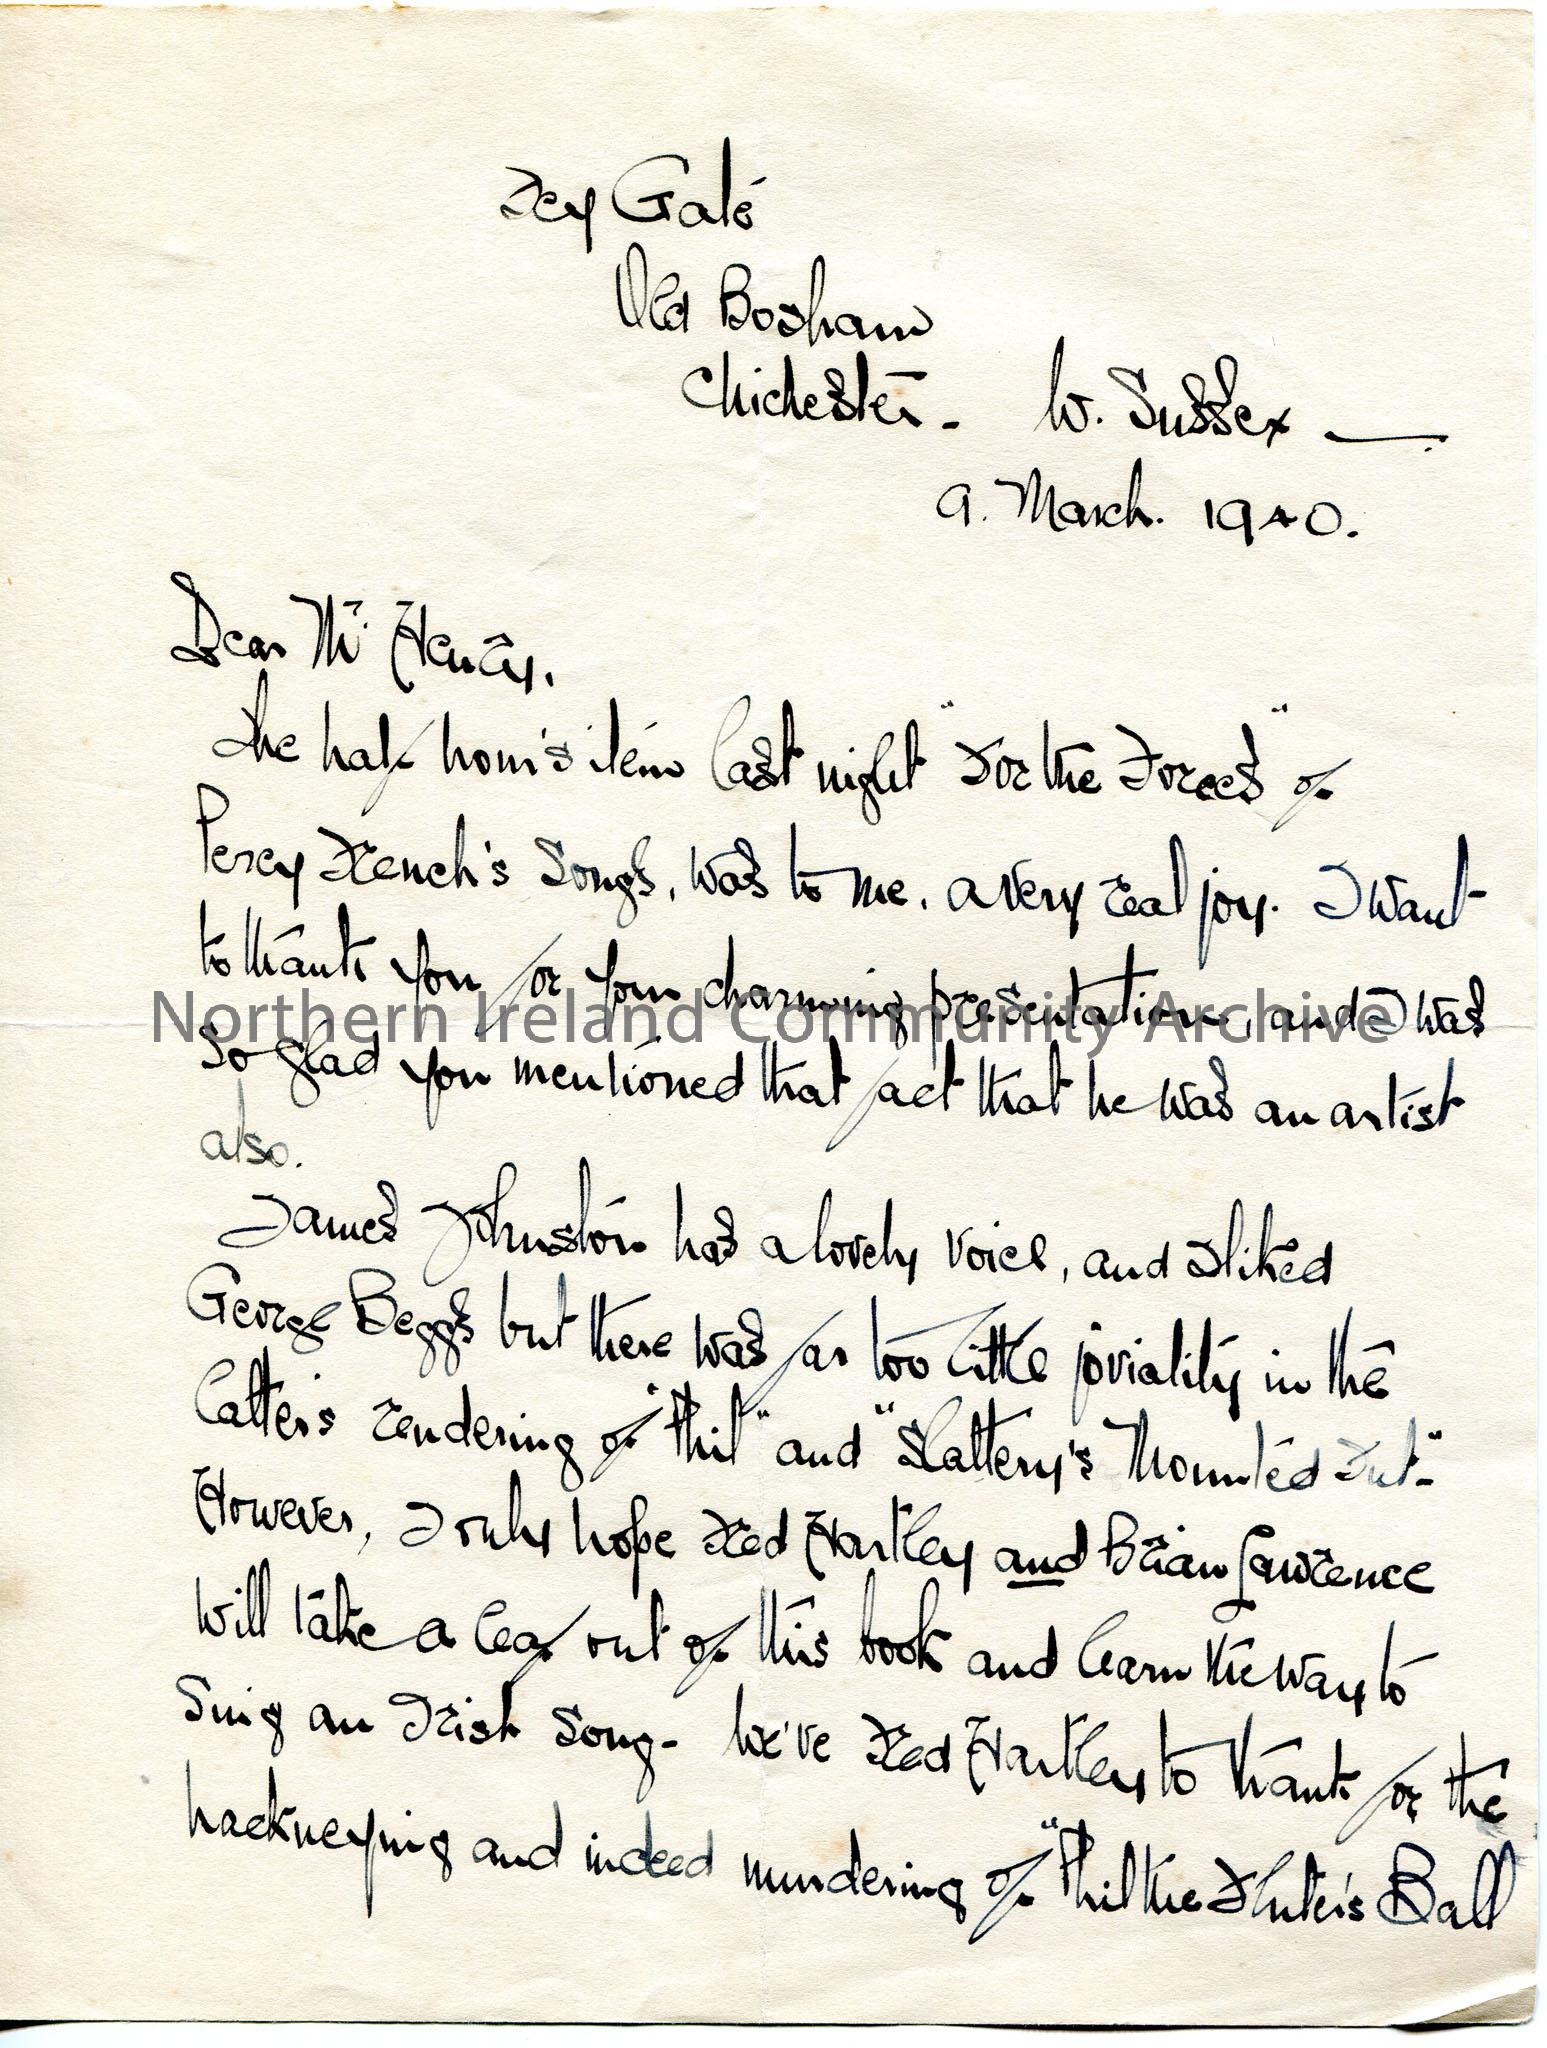 Fey Gate
Old Bosham
Chichester - W. Sussex —
9. March. 1940.
Dear Mr Henry,
The half hour's item last night "For the Forces" of
Percy French's Songs, was to me, a very real joy. I want
to thank you for your charming presentation, and I was
so glad you mentioned that fact that he was an artist
also.
James Johnston has a lovely voice, and I liked
George Beggs but there was far too little joviality in the
latter's rendering of "Phil" and "Slattery's Mounted Fut-"
However, I only hope Fred Hartley and Brian Lawrence
will take a leaf out of this book and learn the way to
sing an Irish song - We've Fred Hartley to thank for the
hackneying and indeed murdering of "Phil the Fluter's Ball
Northern Ireland Community Archive